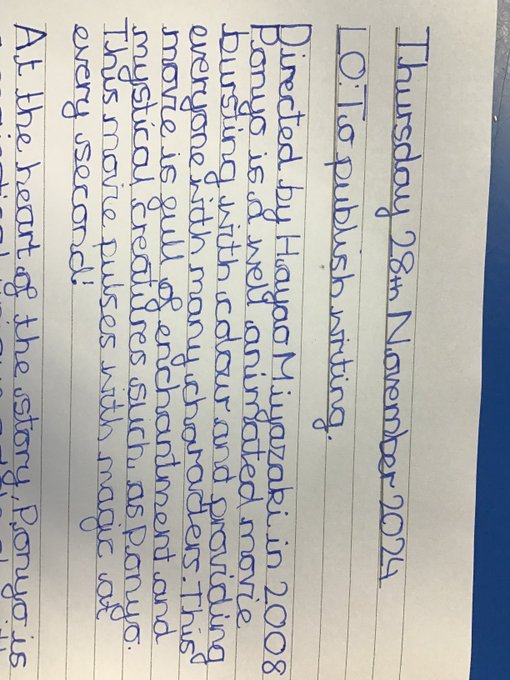 Thursday 28th November 2024
LO: To publish writing.
Directed by Hayao Miyazaki in 2008
Ponyo is a well animated movie
bursting with colour and providing
everyone with many characters. This
movie is full of enchantment and
mystical creatures such as Ponyo.
This movie pulses with magic at
every second!
At the heart of the story, Ponyo is